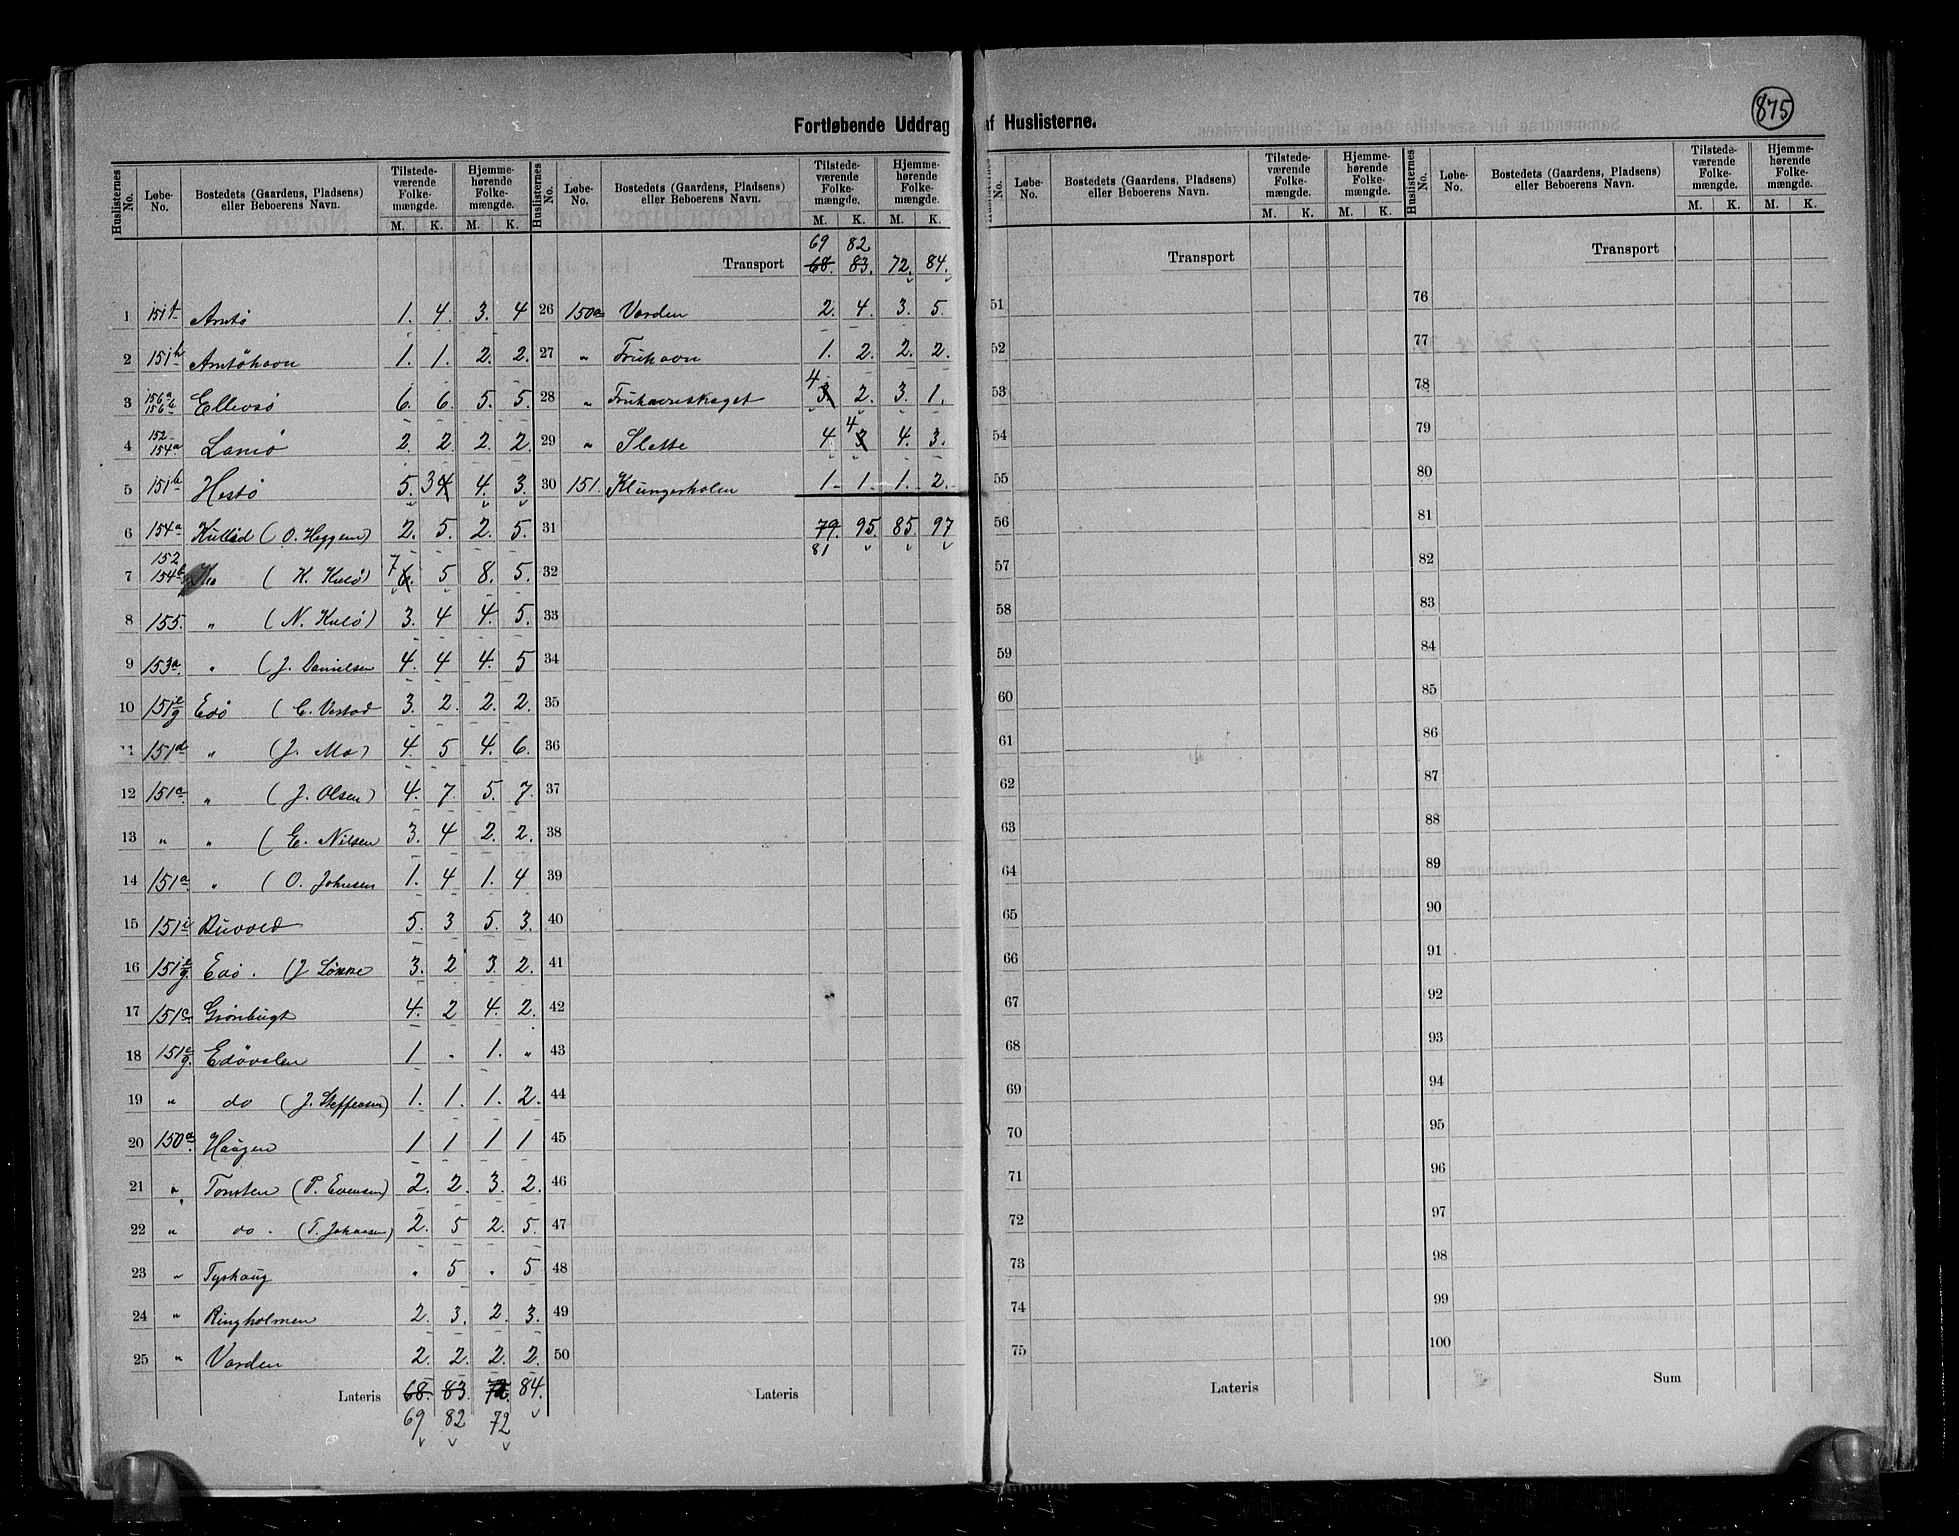 875
Fortløbende Uddrag af Huslisterne.
Huslisternes No. Løbe-No. Bostedets (Gaardens, Pladsens) eller Beboerens Navn. Tilstedeværende Folkemængde. M. K. Hjemmehørende Folkemængde. M. K.
1 151f Arntø 1. 4. 3. 4
2 151h Arntøhavn 1. 1. 2. 2.
3 156a 156b Ellevsø 6. 6. 5. 5.
4 152 154a Lamø 2. 2. 2. 2.
5 151b Hestø 5. 3 4 4. 3.
6 154a Kulød (O. Heggem) 2. 5. 2. 5.
7 152 154b (K. Kulø) 7 6. 5 8. 5.
8 155. " (N. Kulø) 3. 4 4. 5.
9 153a. " (J. Danielsen 4. 4 4. 5
10 151e/g Edø (C. Vestad 3. 2. 2. 2.
11 151d " (J. Mo) 4. 5 4. 6.
12 151c. " (J. Olsen) 4. 7. 5. 7.
13 " " (E. Nilsen 3. 4 2. 2.
14 151a. " (O. Johnsen 1. 4 1. 4
15 151i Buvold 5. 3 5. 3.
16 151e/g. Edø. (J Lønne 3. 2 3. 2.
17 151c. Grønbugt 4. 2 4. 2.
18 151e/g. Edøvolen 1 . 1. "
19 " do (J. Steffensen) 1. 1. 1. 2.
20 150a. Haagen 1 1 1 1
21 " Tomten (P. Evensen) 2. 2. 3. 2.
22 " do. (T. Johansen) 2. 5 2. 5.
23 " Tyshaug . 5 . 5
24 " Ringholmen 2. 3. 2. 3.
25 " Varden 2. 2. 2. 2.
Lateris 68. 83. 72. 84.
69 82 72
Huslisternes No. Løbe-No. Bostedets (Gaardens, Pladsens) eller Beboerens Navn. Tilstedeværende Folkemængde. M. K. Hjemmehørende Folkemængde. M. K.
69 82
Transport 68. 83. 72. 84.
26 150a Varden 2. 4. 3. 5.
27 " Fruhavn 1. 2. 2. 2.
28 " Fruhavneskaget 4 3 2. 3. 1.
29 " Slette 4. 4 3 4. 3.
30 151. Klungerholen 1. 1. 1. 2.
31 79. 95. 85. 97
81
32
33
34
35
36
37
38
39
40
41
42
43
44
45
46
47
48
49
50
Lateris
Huslisternes No. Løbe-No. Bostedets (Gaardens, Pladsens) eller Beboerens Navn. Tilstedeværende Folkemængde. M. K. Hjemmehørende Folkemængde. M. K.
Transport
51
52
53
54
55
56
57
58
59
60
61
62
63
64
65
66
67
68
69
70
71
72
73
74
75
Lateris
Huslisternes No. Løbe-No. Bostedets (Gaardens, Pladsens) eller Beboerens Navn. Tilstedeværende Folkemængde. M. K. Hjemmehørende Folkemængde. M. K.
Transport
76
77
78
79
80
81
82
83
84
85
86
87
88
89
90
91
92
93
94
95
96
97
98
99
100
Sum